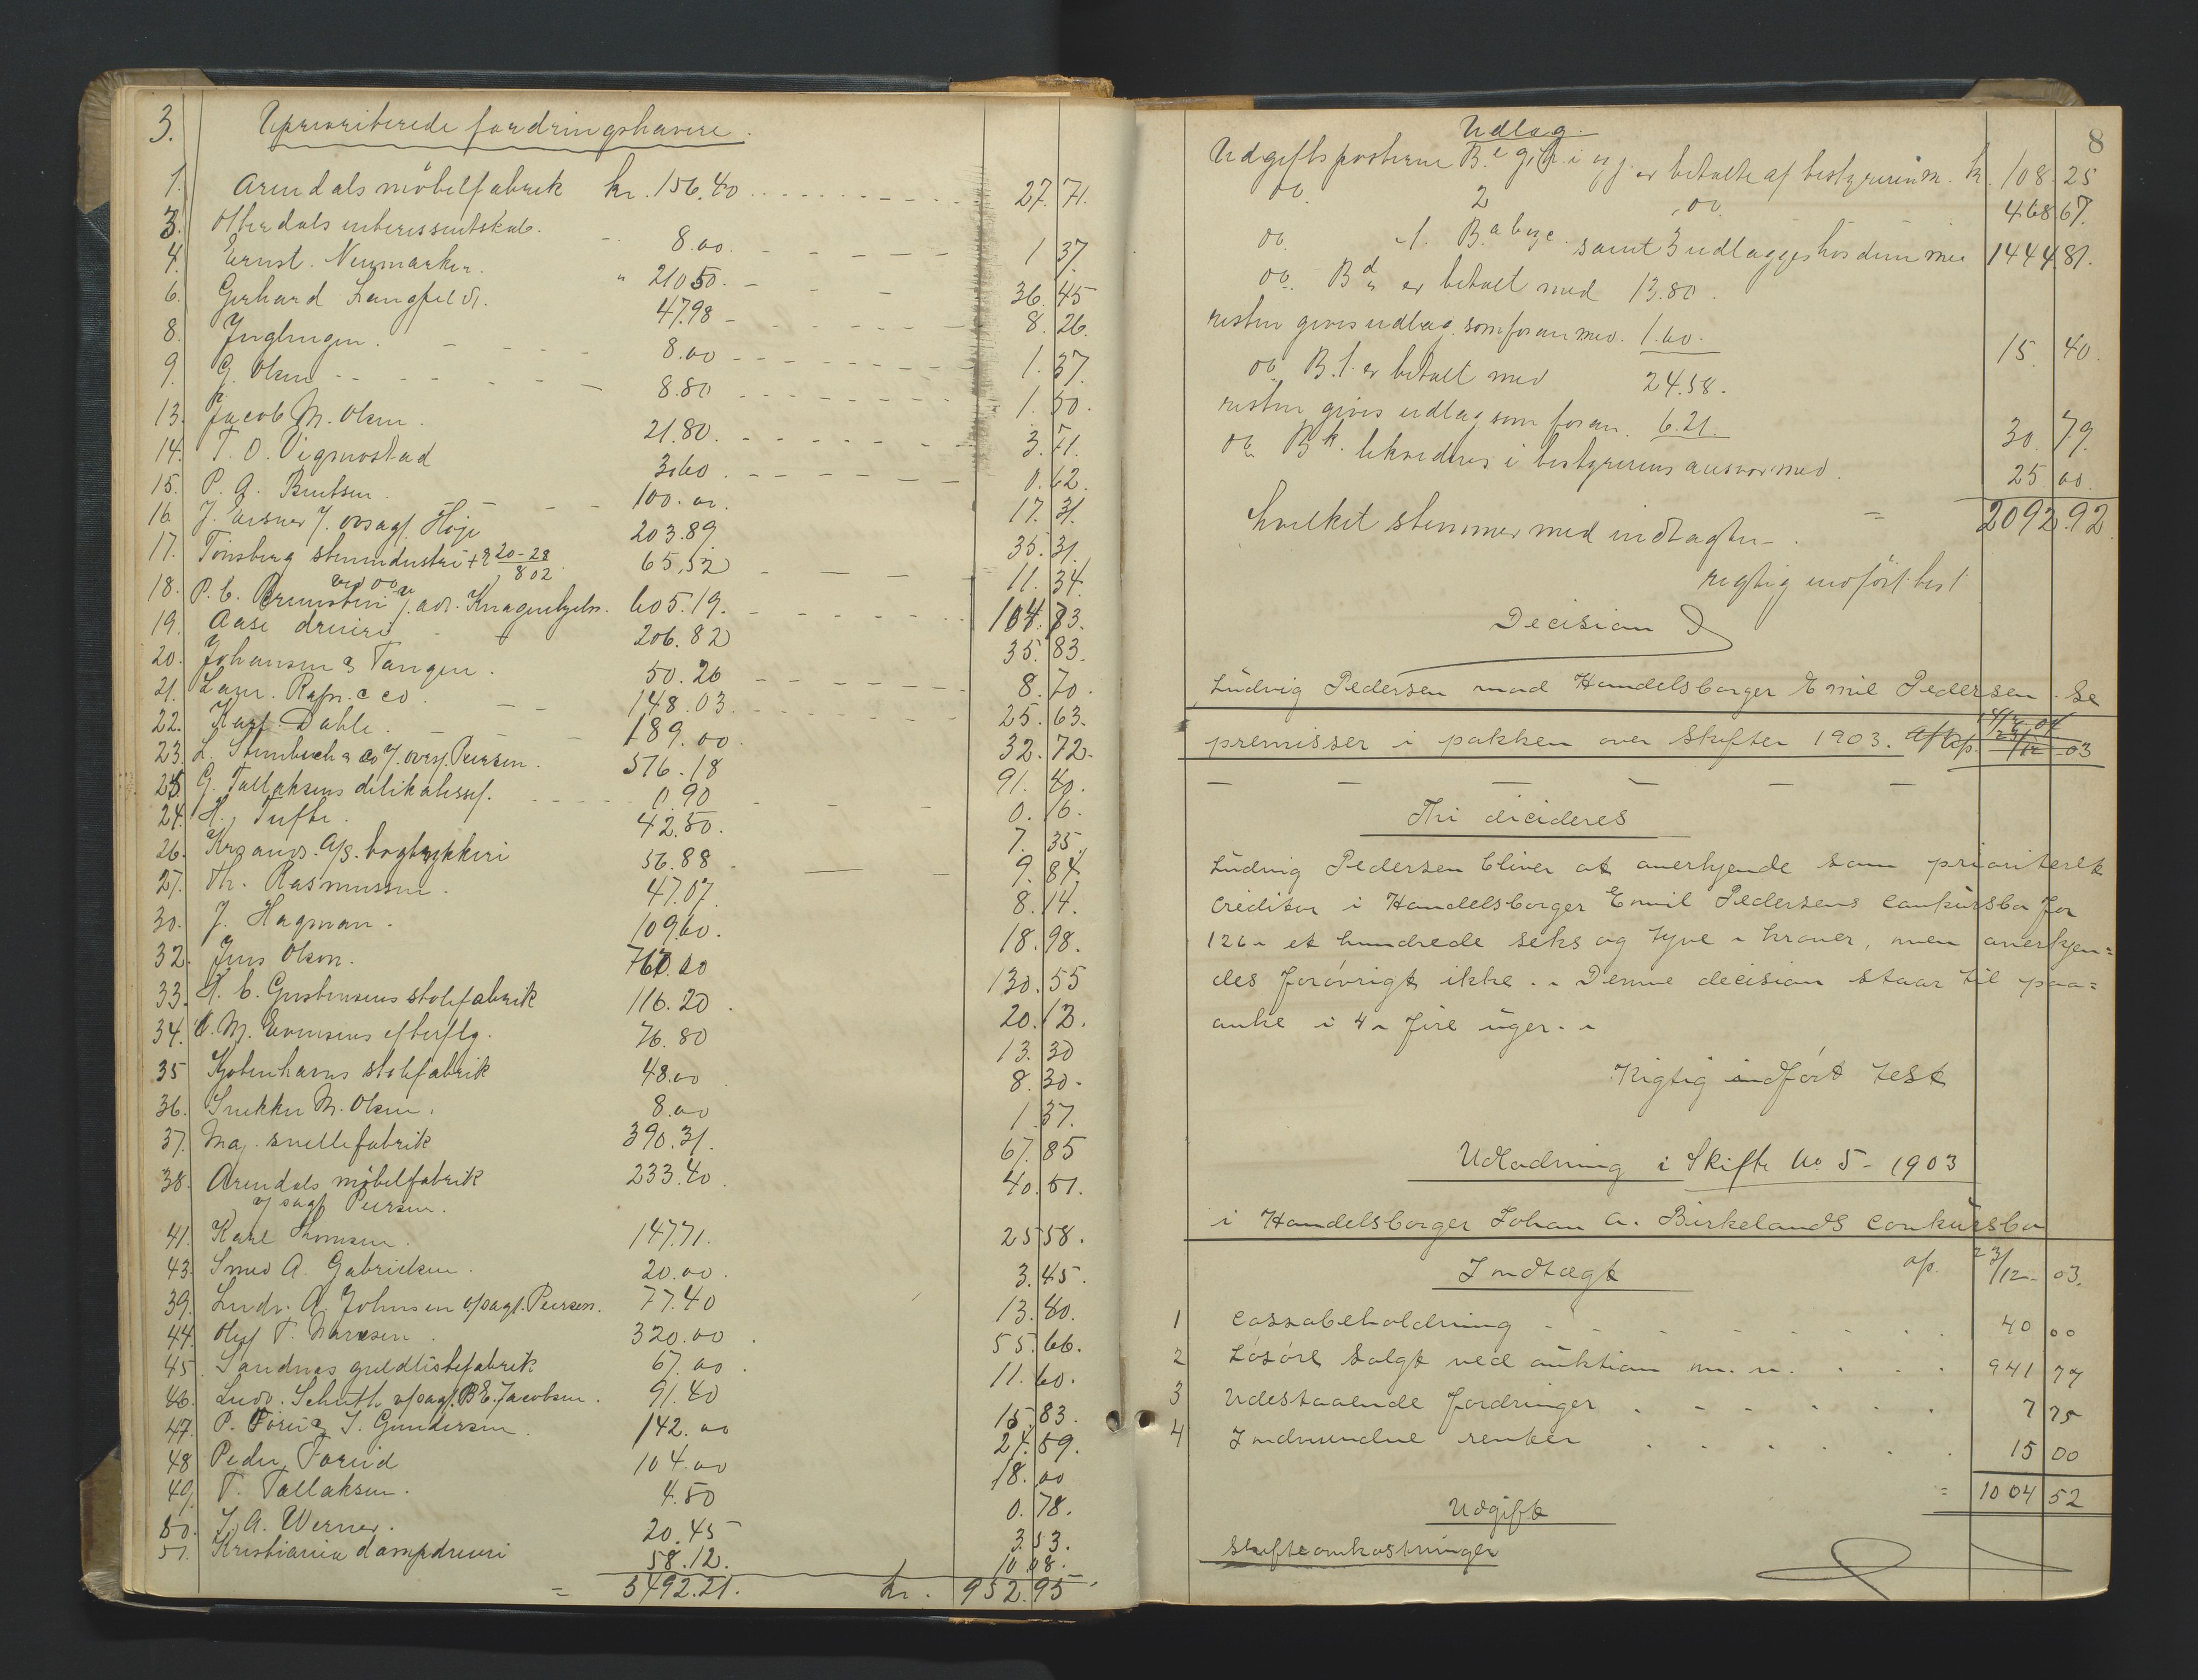 3. Uprioriterede fordringshavere.
1. Arendals möbelfabrik kr. 156.40 27.71.
3. Otterdals interessentskab. 8.00 1 37
4. Ernst Neumarker. " 210 50. 36.45
6. Gerhard Langfeldt. 47.98 8.26.
8. Ynglingen. 8.00 1.37.
9. G. Olsen 8.80 1.50.
13. Jacob M. Olsen. 21.80. 3.71.
14. T. O. Vigmostad 3.60 0.62.
15. P. A. Bentsen. 100.00. 17.31.
16. J. Eisner f. ovsagf. Höje 203.89 35.31
17. Tönsberg stenindustri + 2 20-28 802 65,52 11.34.
18. P. C. 605.19. 104.83.
19. Aase 206.82 35.83.
20. Johansen & Tangen. 50.26 8.70.
21. Laur. Rafn. & co. 148.03. 25.63.
22. Karl Dahle. 189.00 32.72.
23. L. Steinbuch & co f. ovsf. Peersen. 516.18 91.40.
25. G. Tallaksens delikatessf. 0.90 0.16.
24. H. Tufte. 42.50. 7.35.
26. Krsands. A/s. bogtrykkeri 56.88 9.84.
27. Th. Rasmussen. 47.07. 8.14.
30. J. Hagman. 109.60. 18.98.
32. Jens Olsen. 767.00 130.55
33. H. C. Gustensens stolefabrik 116.20. 20.13.
34. O. M. Evensens efterflg. 76.80 13.30
35 Kjöbenhavns stolefabrik 48.00 8.30.
36. Snekker M. Olsen. 8.00 1.37.
37. Maj. snellefabrik 390.31. 67.85
38. Arendals möbelfabrik 233.40. 40.51.
v/ sagf. Peersen.
41. Karl Thomsen. 147.71. 25 58.
43. Smed A. Gabrielsen. 20.00. 3.45.
39. Ludv. A. Johnsen v/sagf. Peersen. 77.40 13.80.
44. Oluf T. 320.00. 55.66.
45. Sandnes guldlistefabrik 67.00. 11.60.
46. Ludv. Schuth v/sagf. B E. Jacobsen. 91.40 15.83.
47. P. Foreid & S. Gundersen. 142.00 24.59.
48 Peder Foreid 104.00 18.00
49. T. Tallaksen. 4.50 0.78.
50. J. A. Werner. 20.45 3.53.
51. Kristiania dampdreieri 58.12. 10.08.
= 5492.21. kr. 952.95
8
Udlæg.
Udgiftsposterne B. e g, h. i og j. er betalte af bestyreren m. kr. 108.25
do. 2 do 468 67.
do. 1. B. a b og c. samt 3 udlægges hos dem med 1444.81.
do. B d er betalt med 13.80.
resten gives udlæg som foran med. 1.60. 15.40.
do B. f. er betalt med 24.58.
resten gives udlæg som foran. 6.21. 30.79.
do B k. likvideres i bestyrerens ansvar med. 25.00.
hvilket stemmer med indtægten = 2092.92.
rigtig indfört: test
Decision I
Lüdvig Pedersen mod Handelsborger Emil Pedersen. Se
premisser i pakken over skifter 1903. 03
Thi decideres
Lüdvig Pedersen bliver at anerkjende som prioriteret
creditor i Handelsborger Emil Pedersens conkürsbo for
126 - et hundrede seks og tyve - kroner, men anerkjen=
des forövrigt ikke. - Denne decision staar til paa=
anke i 4 - fire üger. -
Rigtig indfört test
Udlodning i Skifte No 5 - 1903
i Handelsborger Johan A. Birkelands conkürsbo
Indtægt op. 23/12 - 03.
1 Cassabeholdning 40 00
2 Lösöre solgt ved aüktion m. v. 941 77
3 Udestaaende fordringer 7 75
4 Indvundne renter 15 00
= 1004 52
Udgift
Skifteomkostninger